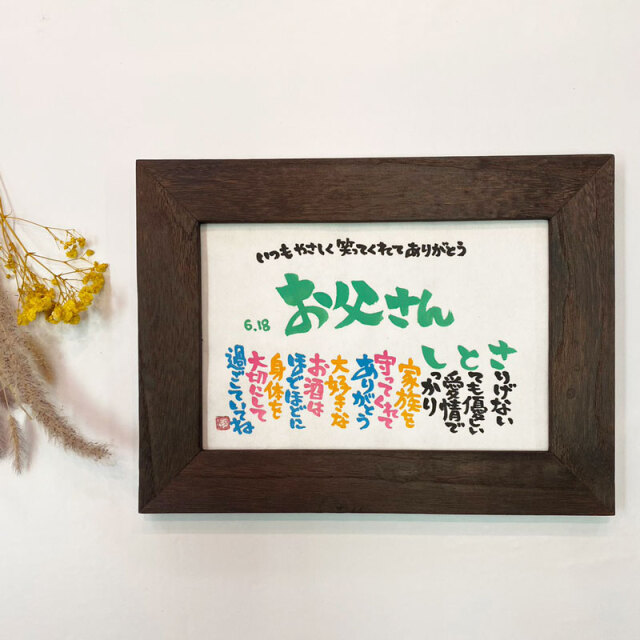 いつもやさしく笑ってくれてありがとう
お父さん
6.18
さりげない
とても優しい
愛情で
しっかり
家族を
守ってくれて
ありがとう
大好きな
お酒は
ほどほどに
身体を
大切にして
過ごしていてね